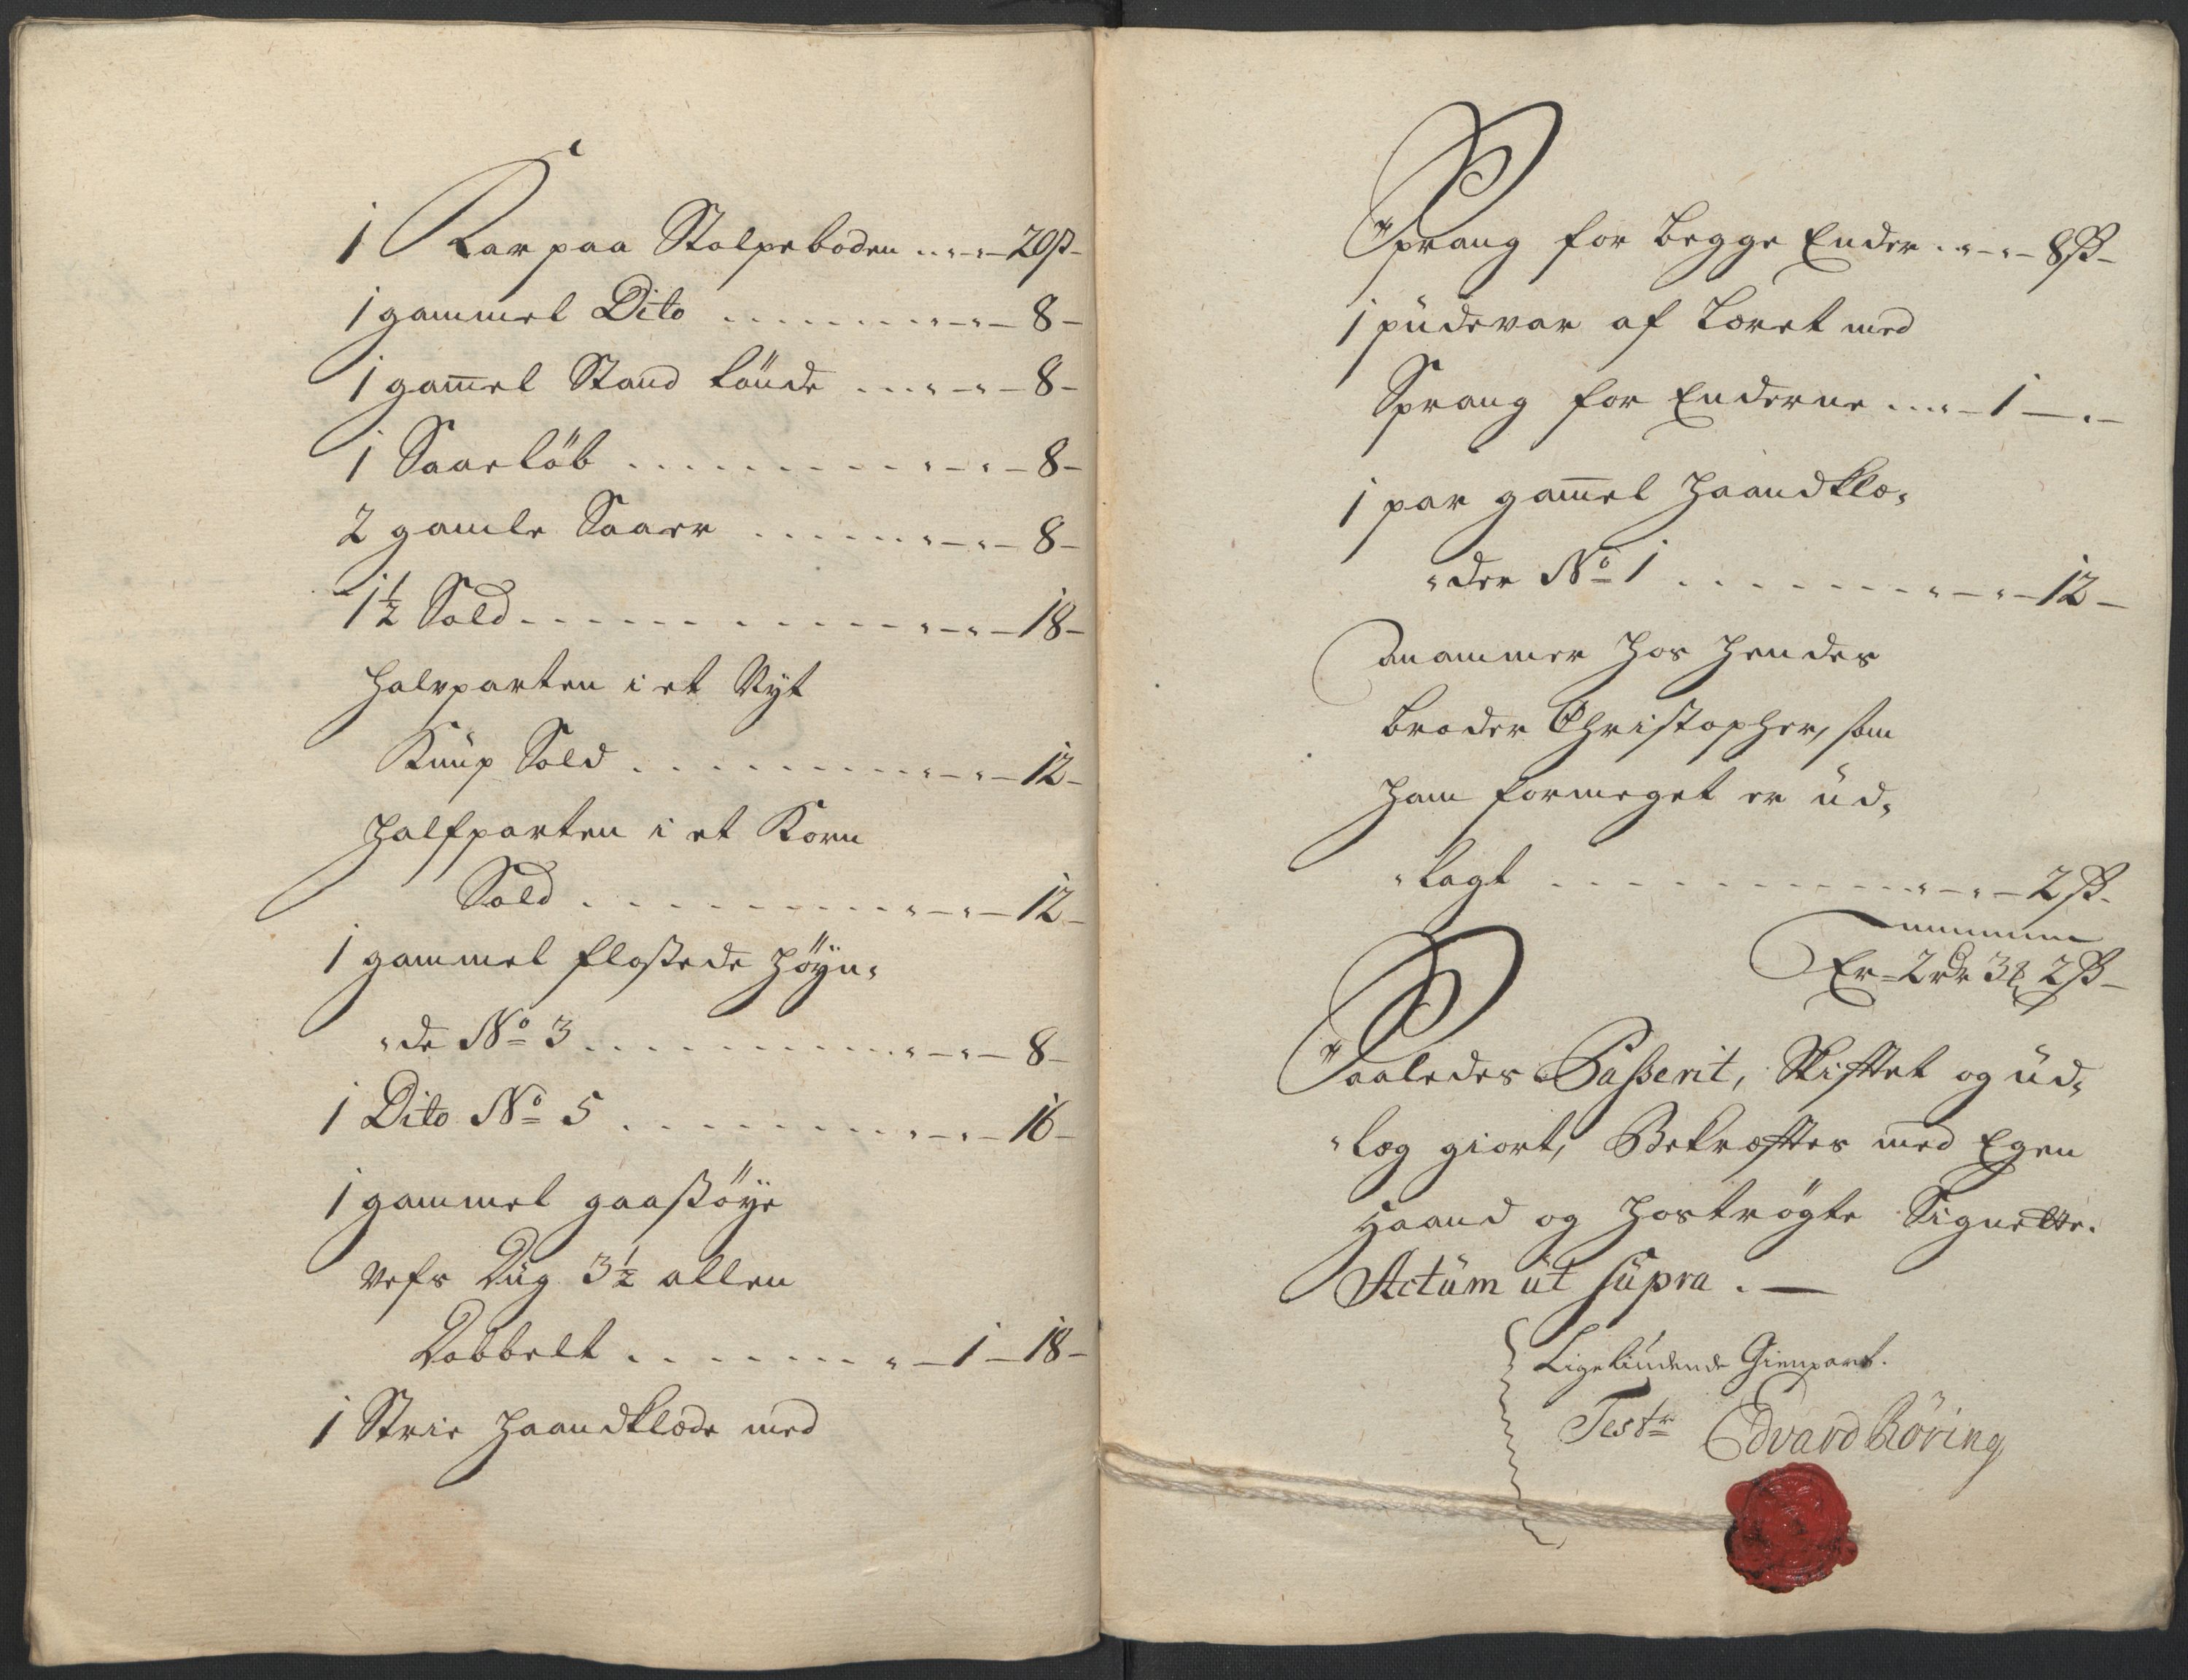 1 Kar paa Stolpeboden ..„-„-20ß-
1 gammel Dito ........„-„-8-
1 gam̅el Stand tönde ...„-„-8-
1 Saarlöb ..........„-„-8-
2 gamle Saaer ......„-„-8-
1½ Sold- - - - - - - - -„-„-18-
Halvparten i et Nyt
Knüp Sold . . . . . . . . „-„-12-
Halfparten i et Korn
Sold . . . . . . . . . „-„-12-
1 gammel floßede Höÿn„
„de No 3 . . . . . . . . . „-„-8-
1 Dito No 5 . . . . . . . . „-„-16-
1 gammel gaasöÿe
Vefs Düg 3½ allen
Dobbelt . . . . . . . „-1-18-
1 Strie Haandklæde med
Sprang for begge Ender . „-„-8ß-
1 püdevar af Læret med
Sprang for Enderne ...„-1-„-
1 par gam̅el Haandklæ„
„der No 1 . . . . . . . „-„-12-
Anammer hos hendes
broder Christopher, som
ham formeget er üd„
„lagt . . . . . . . . . „-„-2ß-
Er-2rdr 3 2ß-
Saaledes Passerit, Skiftet og üd„
„læg giort, Bekræftes med Egen
Haand og hoströgte Signette.
Actüm üt süpra . —
Ligelüdende Gienpart.
Testr Edvard Röring